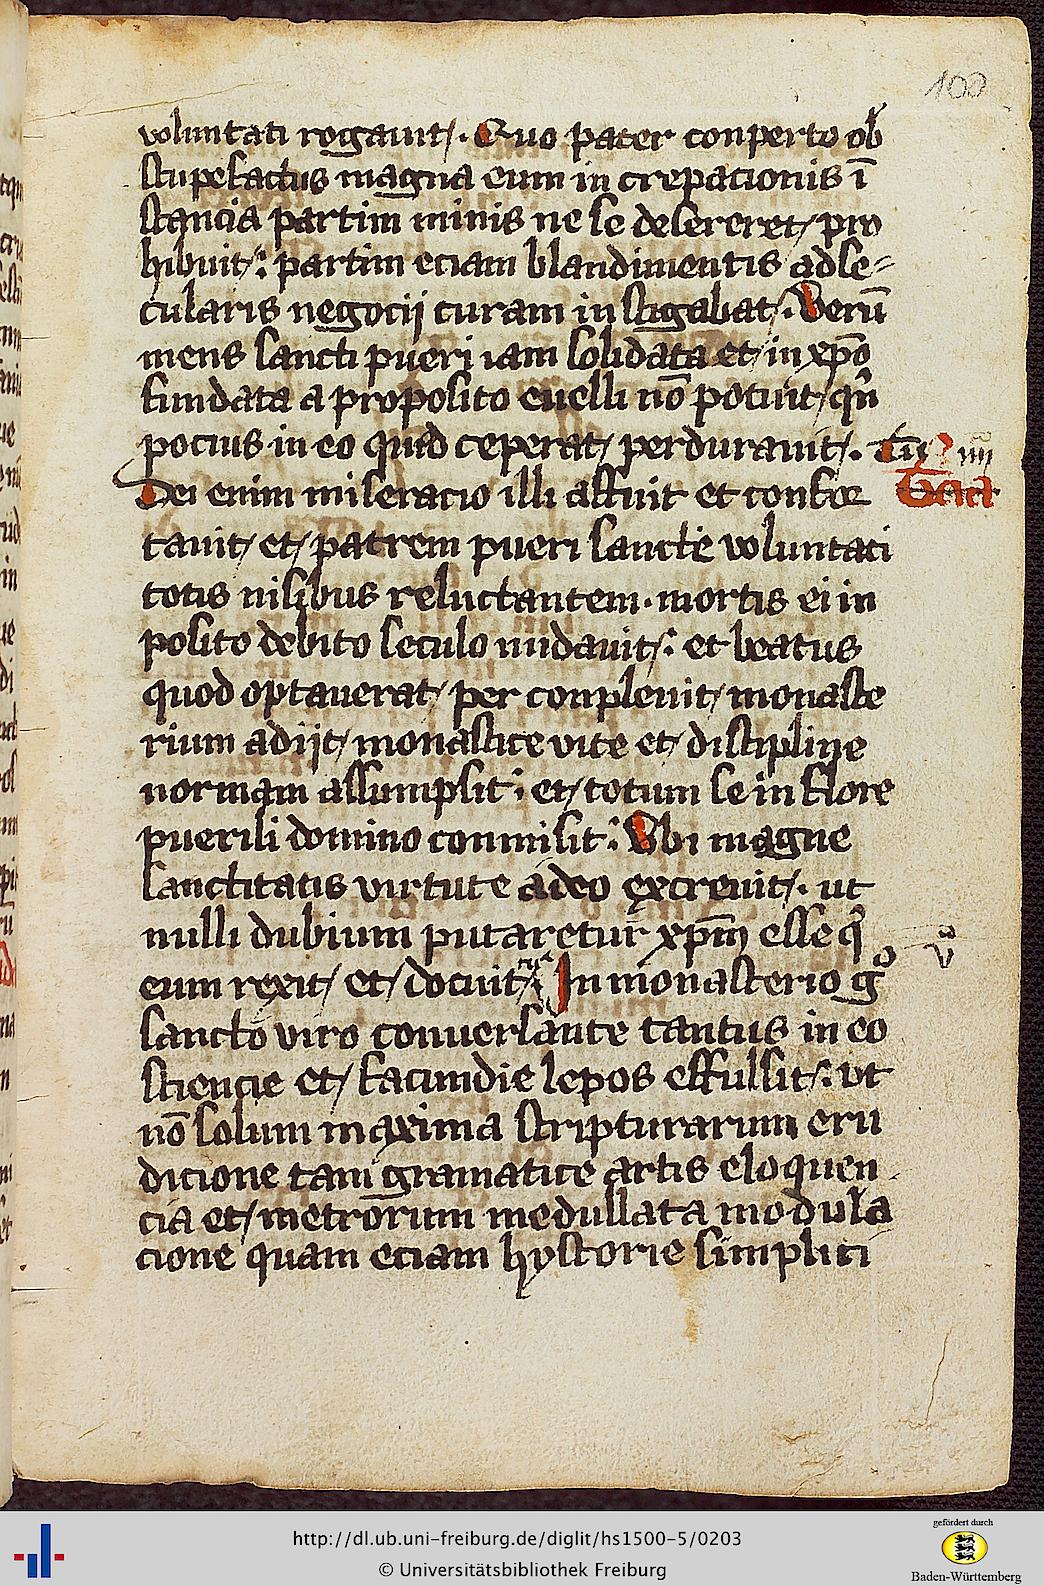 100
voluntati rogauit. Quo pater conperto ob
stupefactus magna eum in crepacionis ī
stancia partim minis ne se desereret pro
hibuit: partim eciam blandimentis ad se-
cularis negocij curam in stigabat. Verū
mens sancti pueri iam solidata et in xp̄o
fundata a proposito euelli nō potuit qn̄
pocius in eo quod ceperat perdurauit.
Dei enim miseracio illi affuit et confor
tauit et patrem pueri sancte voluntati
totis nisibus reluctantem. mortis ei in
posito debito seculo nudauit: et beatus
quod optauerat per conpleuit monaste
rium adijt monastice vite et discipline
normam assumpsit: et totum se in flore
puerili domino conmisit: Vbi magne
sanctitatis virtute adeo excreuit. ut
nulli dubium putaretur xpm̄ esse q̄
eum rexit et docuit In monasterio gͦ
sancto viro conuersante tantus in eo
sciencie et facundie lepos effulsit: vt
nō solum maxima scripturarum eru
dicione tam gramatice artis eloquen
cia et metrorum medullata modula
cione quam eciam hystorie simplici
http://dl.ub.uni-freiburg.de/diglit/hs1500-5/0203
© Universitätsbibliothek Freiburg
gefördert durch
Baden-Württemberg